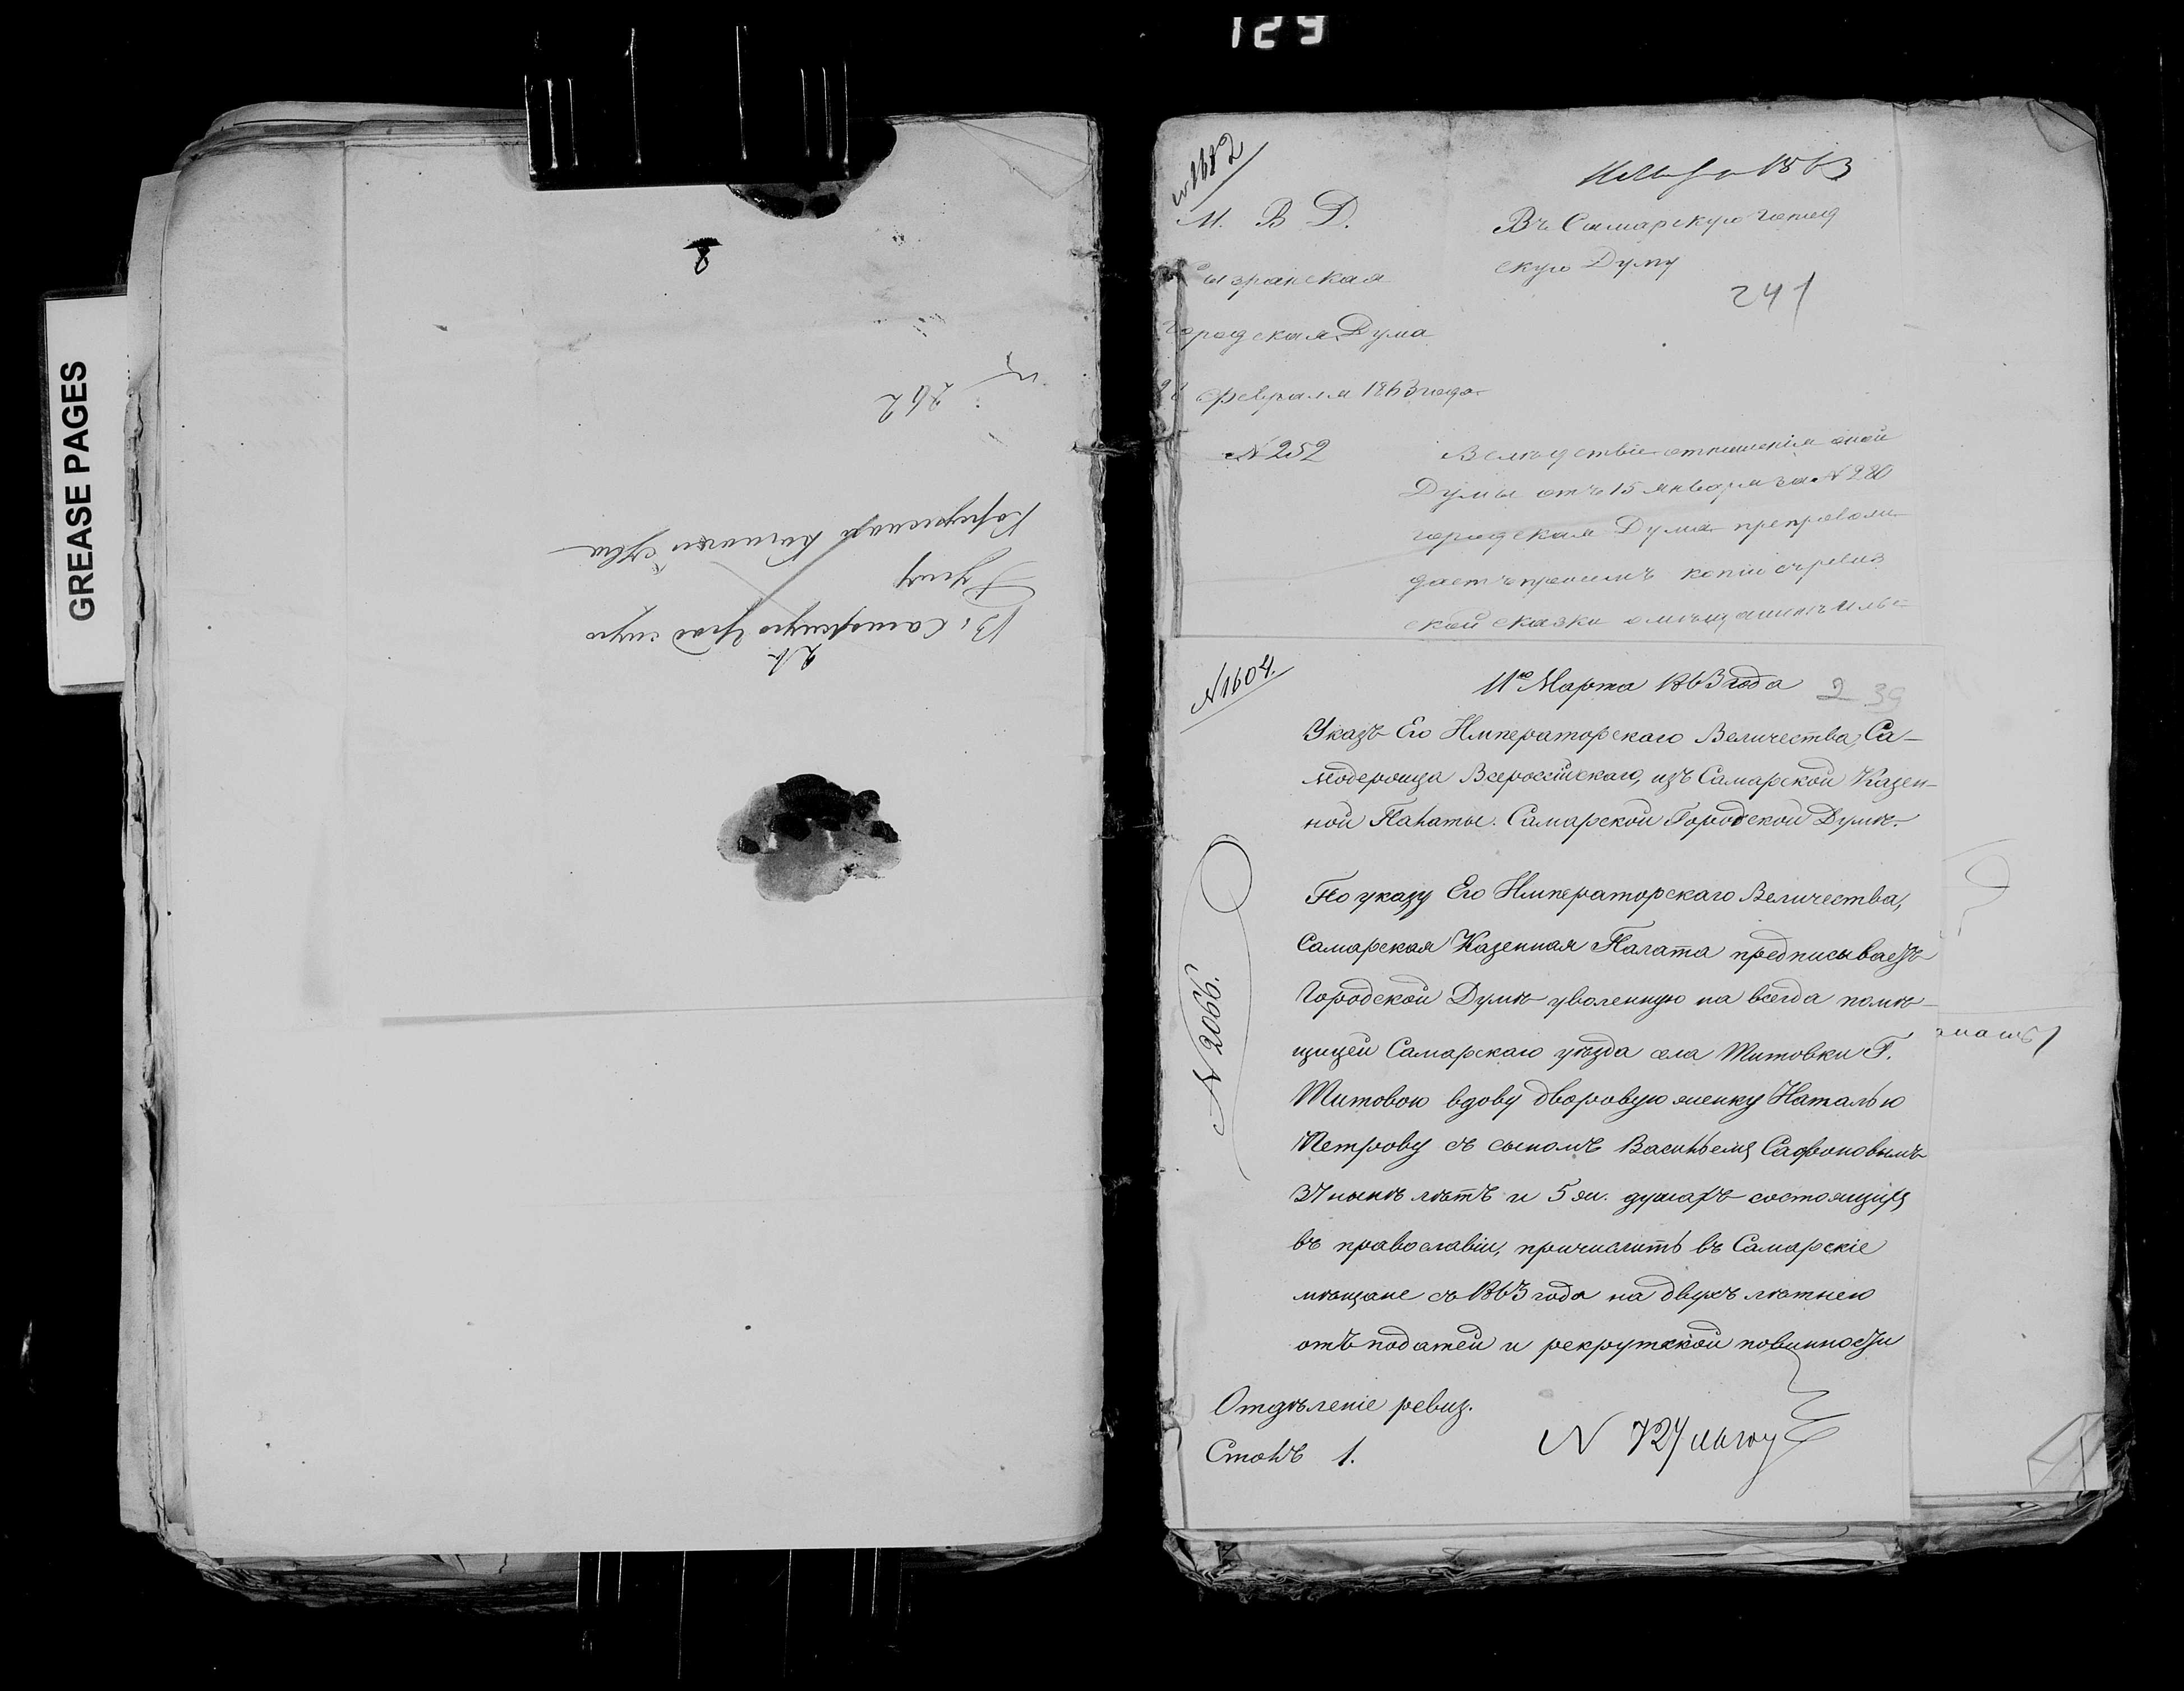 129
GREASE PAGES
8
262
Въ Самарскую Град скую
Думу
№ 1682
1863
М. В. Д.
Въ Самарскую город
скую Думу
241
Сызранская
городская Дума
февраля 1863 года
№ 252
Вследствіе отношенія оной
Думы отъ 15 января за № 280
городская Дума препровож
даетъ при семъ копіи съ ревиз
ской сказки о мещанинѣ
№ 1604.
11го Марта 1863 года
239
Указъ Его Императорскаго Величества, Са-
модержца Всероссійскаго, изъ Самарской Казен-
ной Палаты. Самарской Городской Думѣ.
По указу Его Императорскаго Величества,
Самарская Казенная Палата предписываетъ
Городской Думѣ уволенную на всегда помѣ-
щицей Самарскаго уѣзда села Титовки Г.
Титовою вдову дворовую женку Наталью
Петрову съ сыномъ Васильемъ Сафоновымъ
37 нынѣ лѣтъ и 5 ж. душахъ состоящихъ
въ православіи, причислить въ Самарскіе
мѣщане съ 1863 года на двухъ лѣтнею
отъ податей и рекрутской повинности
№ 2066.
Отдѣленіе ревиз.
Столъ 1.